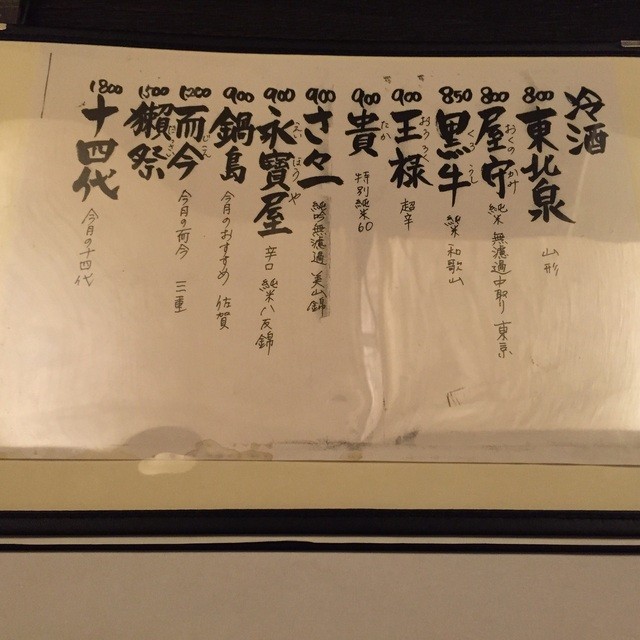 冷酒
800 東北泉 山形
800 屋守 おくのかみ 純米 無濾過中取り 東京
850 黒牛 くろうし 純米 和歌山
900 王祿 おうろく 超辛
900 貴 たか 特別純米60
900 さゝ一 純吟無濾過 美山錦
900 永寳屋 えいほうや 辛口 純米 八反錦
900 鍋島 今月のおすすめ 佐賀
1200 而今 じこん 今月の而今 三重
1500 獺祭 だっさい
1800 十四代 今月の十四代